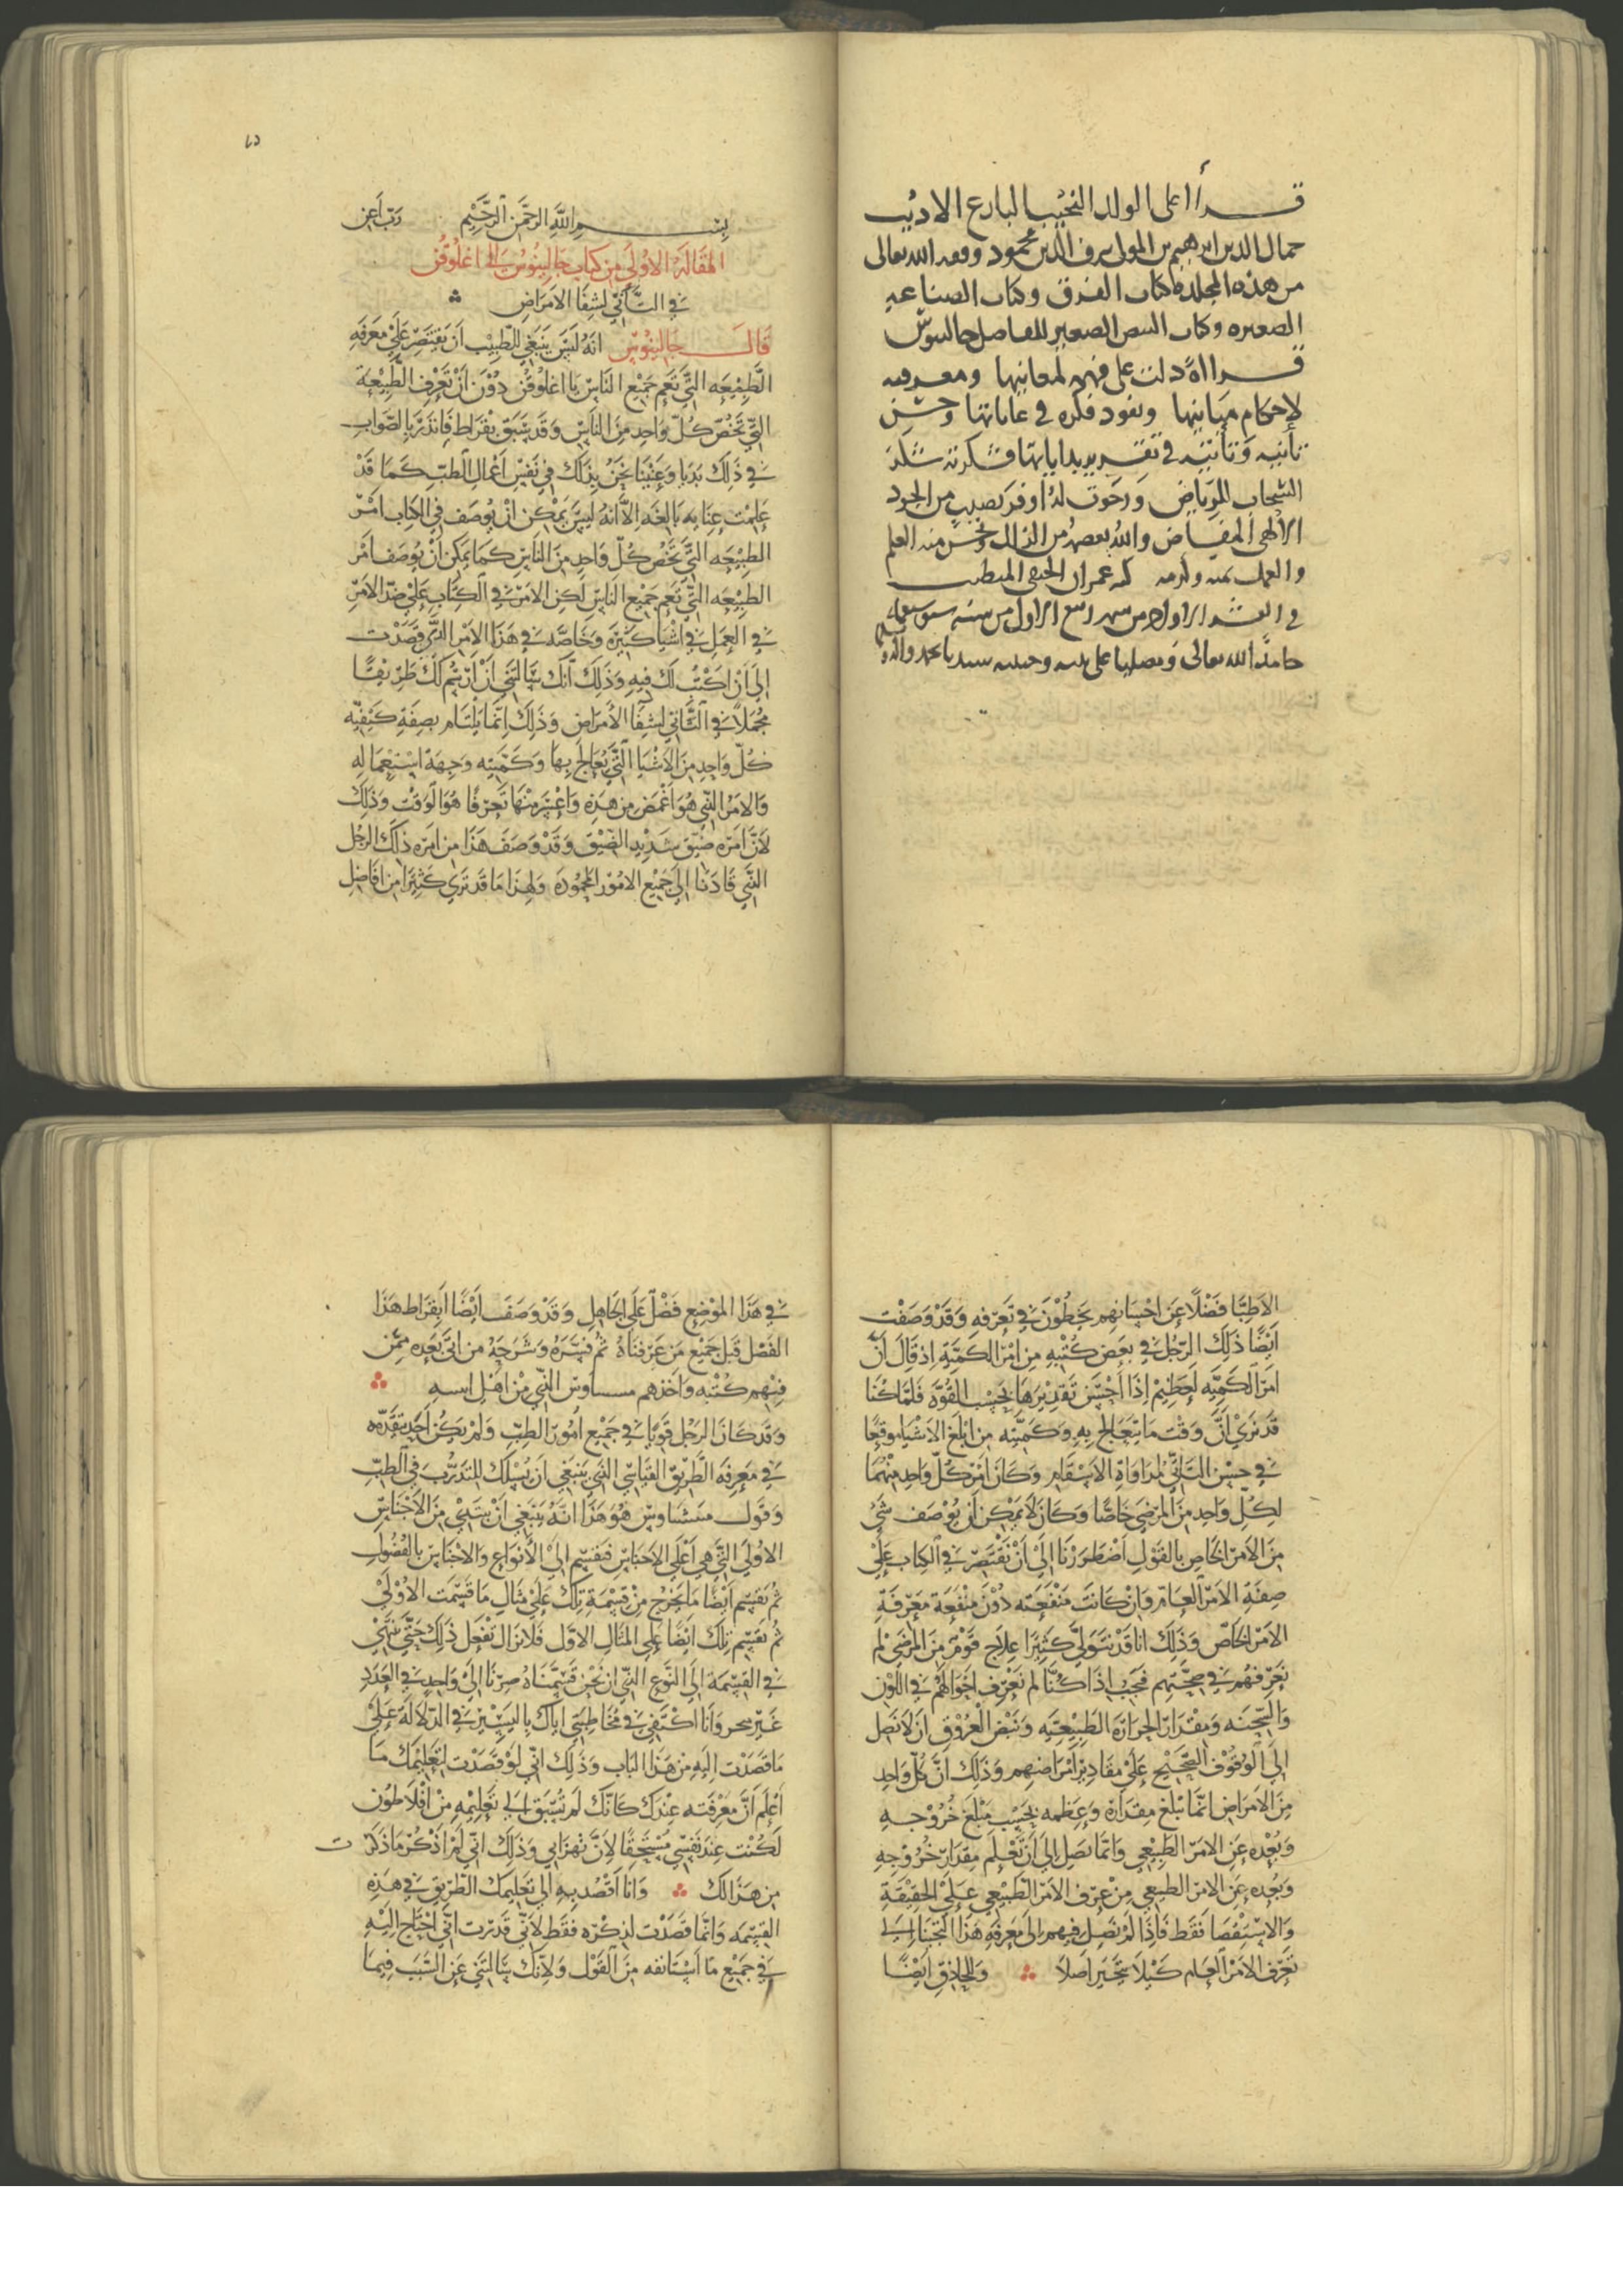 قرأ على الولد النجيب البارع الاديب
جمال الدين ابرهيم بن المولى شرف الدين محمود وفقه الله تعالى
من هذه المجلدة كتاب الفرق وكتاب الصناعه
الصغيره وكتاب النبض الصغير للفاضل جالينوس
قراة دلت على فهمه لمعانيها ومعرفته
لإحكام مبانيها ونفوذ فكره في غاياتها وحسن
تأنيه وتأتيه في تقرير بداياتها فشكرته شكر
السحاب الرياض ورجوت له أوفر نصيب من الجود
الالهي المفاض والله يعصمه من الزلل ويحسن منه العلم
والعمل بمنه وكرمه كتبه عمران الحنفي المتطبب
في العشر الاول من شهر ربيع الاول من سنه
حامدا لله تعالى ومصليا على نبيه وحبيبه سيدنا محمد واله
٤٥
بسم الله الرحمن الرحيم رب أعن
المقالة الاولى من كتاب جالينوس الى اغلوقن
في التأتي لشفا الامراض
قال جالينوس انه ليس ينبغي للطبيب أن يقتصر على معرفه
الطبيعه التي تعم جميع الناس يا اغلوقن دون أن يعرف الطبيعة
التي تخص كل واحد من الناس وقد سبق بقراط فانذر بالصواب
في ذلك بديا وعنينا نحن بذلك في نفس اعمال الطب كما قد
علمت عنايه بالغه الا أنه ليس يمكن أن يوصف في الكتاب امر
الطبيعه التي تخص كل واحد من الناس كما يمكن أن يوصف امر
الطبيعه التي تعم جميع الناس لكن الامر في الكتاب على ضد الامر
في العمل في اشيا كثيرة وخاصه في هذا الامر الذي قصدت
إلى أن اكتب لك فيه وذلك أنك سالتني أن أرسم لك طريقا
مجملا في التأتي لشفا الأمراض وذلك إنما يلتام بصفة كيفيه
كل واحد من الاشيا التي يعالج بها وكميته وجهة استعماله
والامر الذي هو اغمض من هذه واعسر منها تعرفا هو الوقت وذلك
لأن امره ضيق شديد الضيق وقد وصف هذا من امره ذلك الرجل
الذي قادنا إلى جميع الامور المحمودة ولهذا ما قد ترى كثيرا من افاضل
الاطبا فضلا عن اخسائهم يخطئون في تعرفه وقد وصفت
ايضا ذلك الرجل في بعض كتبه من امر الكمية اذ قال أن
امر الكميه لعظيم اذا أحسن تقديرها بحسب القوة فلما كنا
قد نرى أن وقت ما يتعالج به وكميته من ابلغ الاشيا موقعا
في حسن التأتي لمداواة الاسقام وكان امر كل واحد منهما
لكل واحد من المرضى خاصا وكان لا يمكن أن يوصف شي
من الامر الخاص بالقول اضطررنا إلى أن نقتصر في الكتاب على
صفة الامر العام وان كانت منفعته دون منفعة معرفة
الامر الخاص وذلك انا قد نتولى كثيرا علاج قوم من المرضى لم
نعرفهم في صحتهم فيجب اذا كنا لم نعرف احوالهم في اللون
والسحنه ومقدار الحرارة الطبيعيه ونبض العروق ان لا نصل
إلى الوقوف الصحيح على مقادير أمراضهم وذلك أن كل واحد
من الامراض انما يبلغ مقداره وعظمه بحسب مبلغ خروجه
وبعده عن الامر الطبيعي وانما يصل إلى أن تعلم مقدار خروجه
وبعده عن الامر الطبيعي من عرف الامر الطبيعي على الحقيقة
والاستقصا فقط فاذا لم نصل فيهم إلى معرفة هذا التجينا إلى
تعرف الامر العام كيلا نتحير أصلا وللحاذق ايضا
في هذا الموضع فضل على الجاهل وقد وصف ايضا ابقراط هذا
الفصل قبل جميع من عرفناه ثم فسره وشرحه من اتى بعده ممن
فهم كتبه واخدهم الذي من اهل
وقد كان الرجل قويا في جميع امور الطب ولم يكن احد تقدمه
في معرفه الطريق القياسي الذي ينبغي أن يسلك للتدرب في الطب
وقول هو هذا انه ينبغي أن نبتدي من الاجناس
الاولى التي هي أعلى الاجناس فيقسم إلى الأنواع والاجناس بالفصول
ثم يقسم أيضا ما يخرج من قسمة تلك على مثال ما قسمت الأولى
ثم يقسم تلك ايضا على المثال الاول فلا نزال نفعل ذلك حتى ننتهي
في القسمة إلى النوع الذي ان نحن قسمناه صرنا إلى واحد في العدد
غير متجز وانا اكتفي في مخاطبتي اياك باليسير في الدلالة على
ما قصدت اليه من هذا الباب وذلك اني لو قصدت لتعليمك ما
أعلم أن معرفته عندك كانك لم تسبق إلى تعليمه من افلاطون
لكنت عند نفسي مستحقا لأن تهزا بي وذلك اني لم أذكر ما ذكرت
من هذا لك وانا اقصد به الى تعليمك الطريق في هذه
القسمه وانما قصدت لذكره فقط لأني قدرت اني احتاج اليه
في جميع ما استانفه من القول ولانك سالتني عن السبب فيما